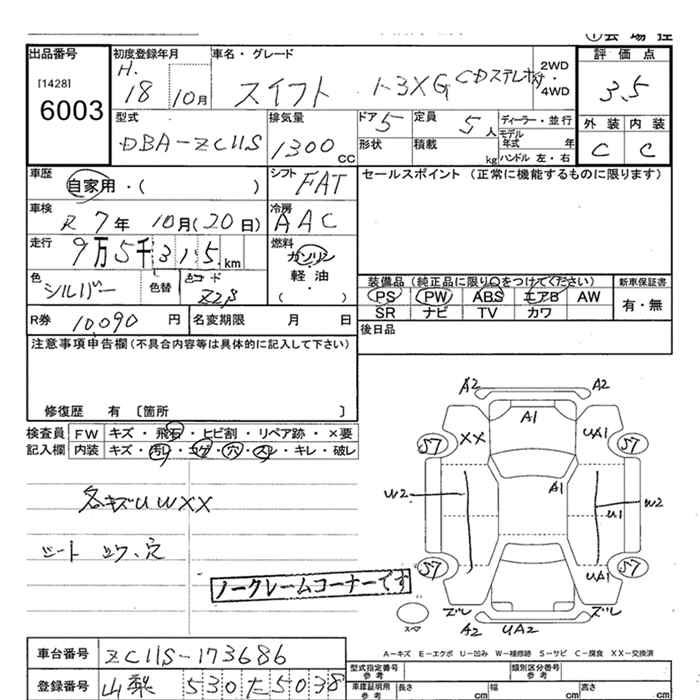 出品番号
[1428]
6003
初度登録年月
H.
18 10月
車名・グレード
スイフト 1-3XG CDステレオ付
2WD・4WD
評価点
3.5
外装 内装
C C
型式
DBA-ZC11S
排気量
1300 CC
ドア 5
定員 5人
形状
積載 kg
ディーラー・並行
モデル年式 年
ハンドル 左・右
車歴
自家用・( )
シフト FAT
セールスポイント (正常に機能するものに限ります)
車検
R 7年 10月(20日)
冷房 AAC
走行
9万5千315km
燃料
ガソリン
軽・油
・( )
色
シルバー
色替
色コード
Z2S
装備品(純正品に限り○をつけてください)
新車保証書
PS PW ABS エアB AW
有・無
SR ナビ TV カワ
R券 10,090円
名変期限 月 日
後日品
注意事項申告欄(不具合内容等は具体的に記入して下さい)
修復歴 有 〔箇所 〕
検査員 FW キズ・飛石・ヒビ割・リペア跡・×要
記入欄 内装 キズ・汚レ・コゲ・穴・スレ・キレ・破レ
各キズUWXX
シート コゲ、穴
ノークレームコーナーです
A2 A2
A1
57 XX UA1 57
A1
W2 U1 W2
57 UA1 57
ズレ ズレ
スペア
A2 UA2
A-キズ E-エクボ U-凹み W-補修跡 S-サビ C-腐食 XX-交換済
車台番号 ZC11S-173686
型式指定番号 参考
類別区分番号 参考
登録番号 山梨 530た5038
車庫証明用 参考
長さ cm
幅 cm
高さ cm